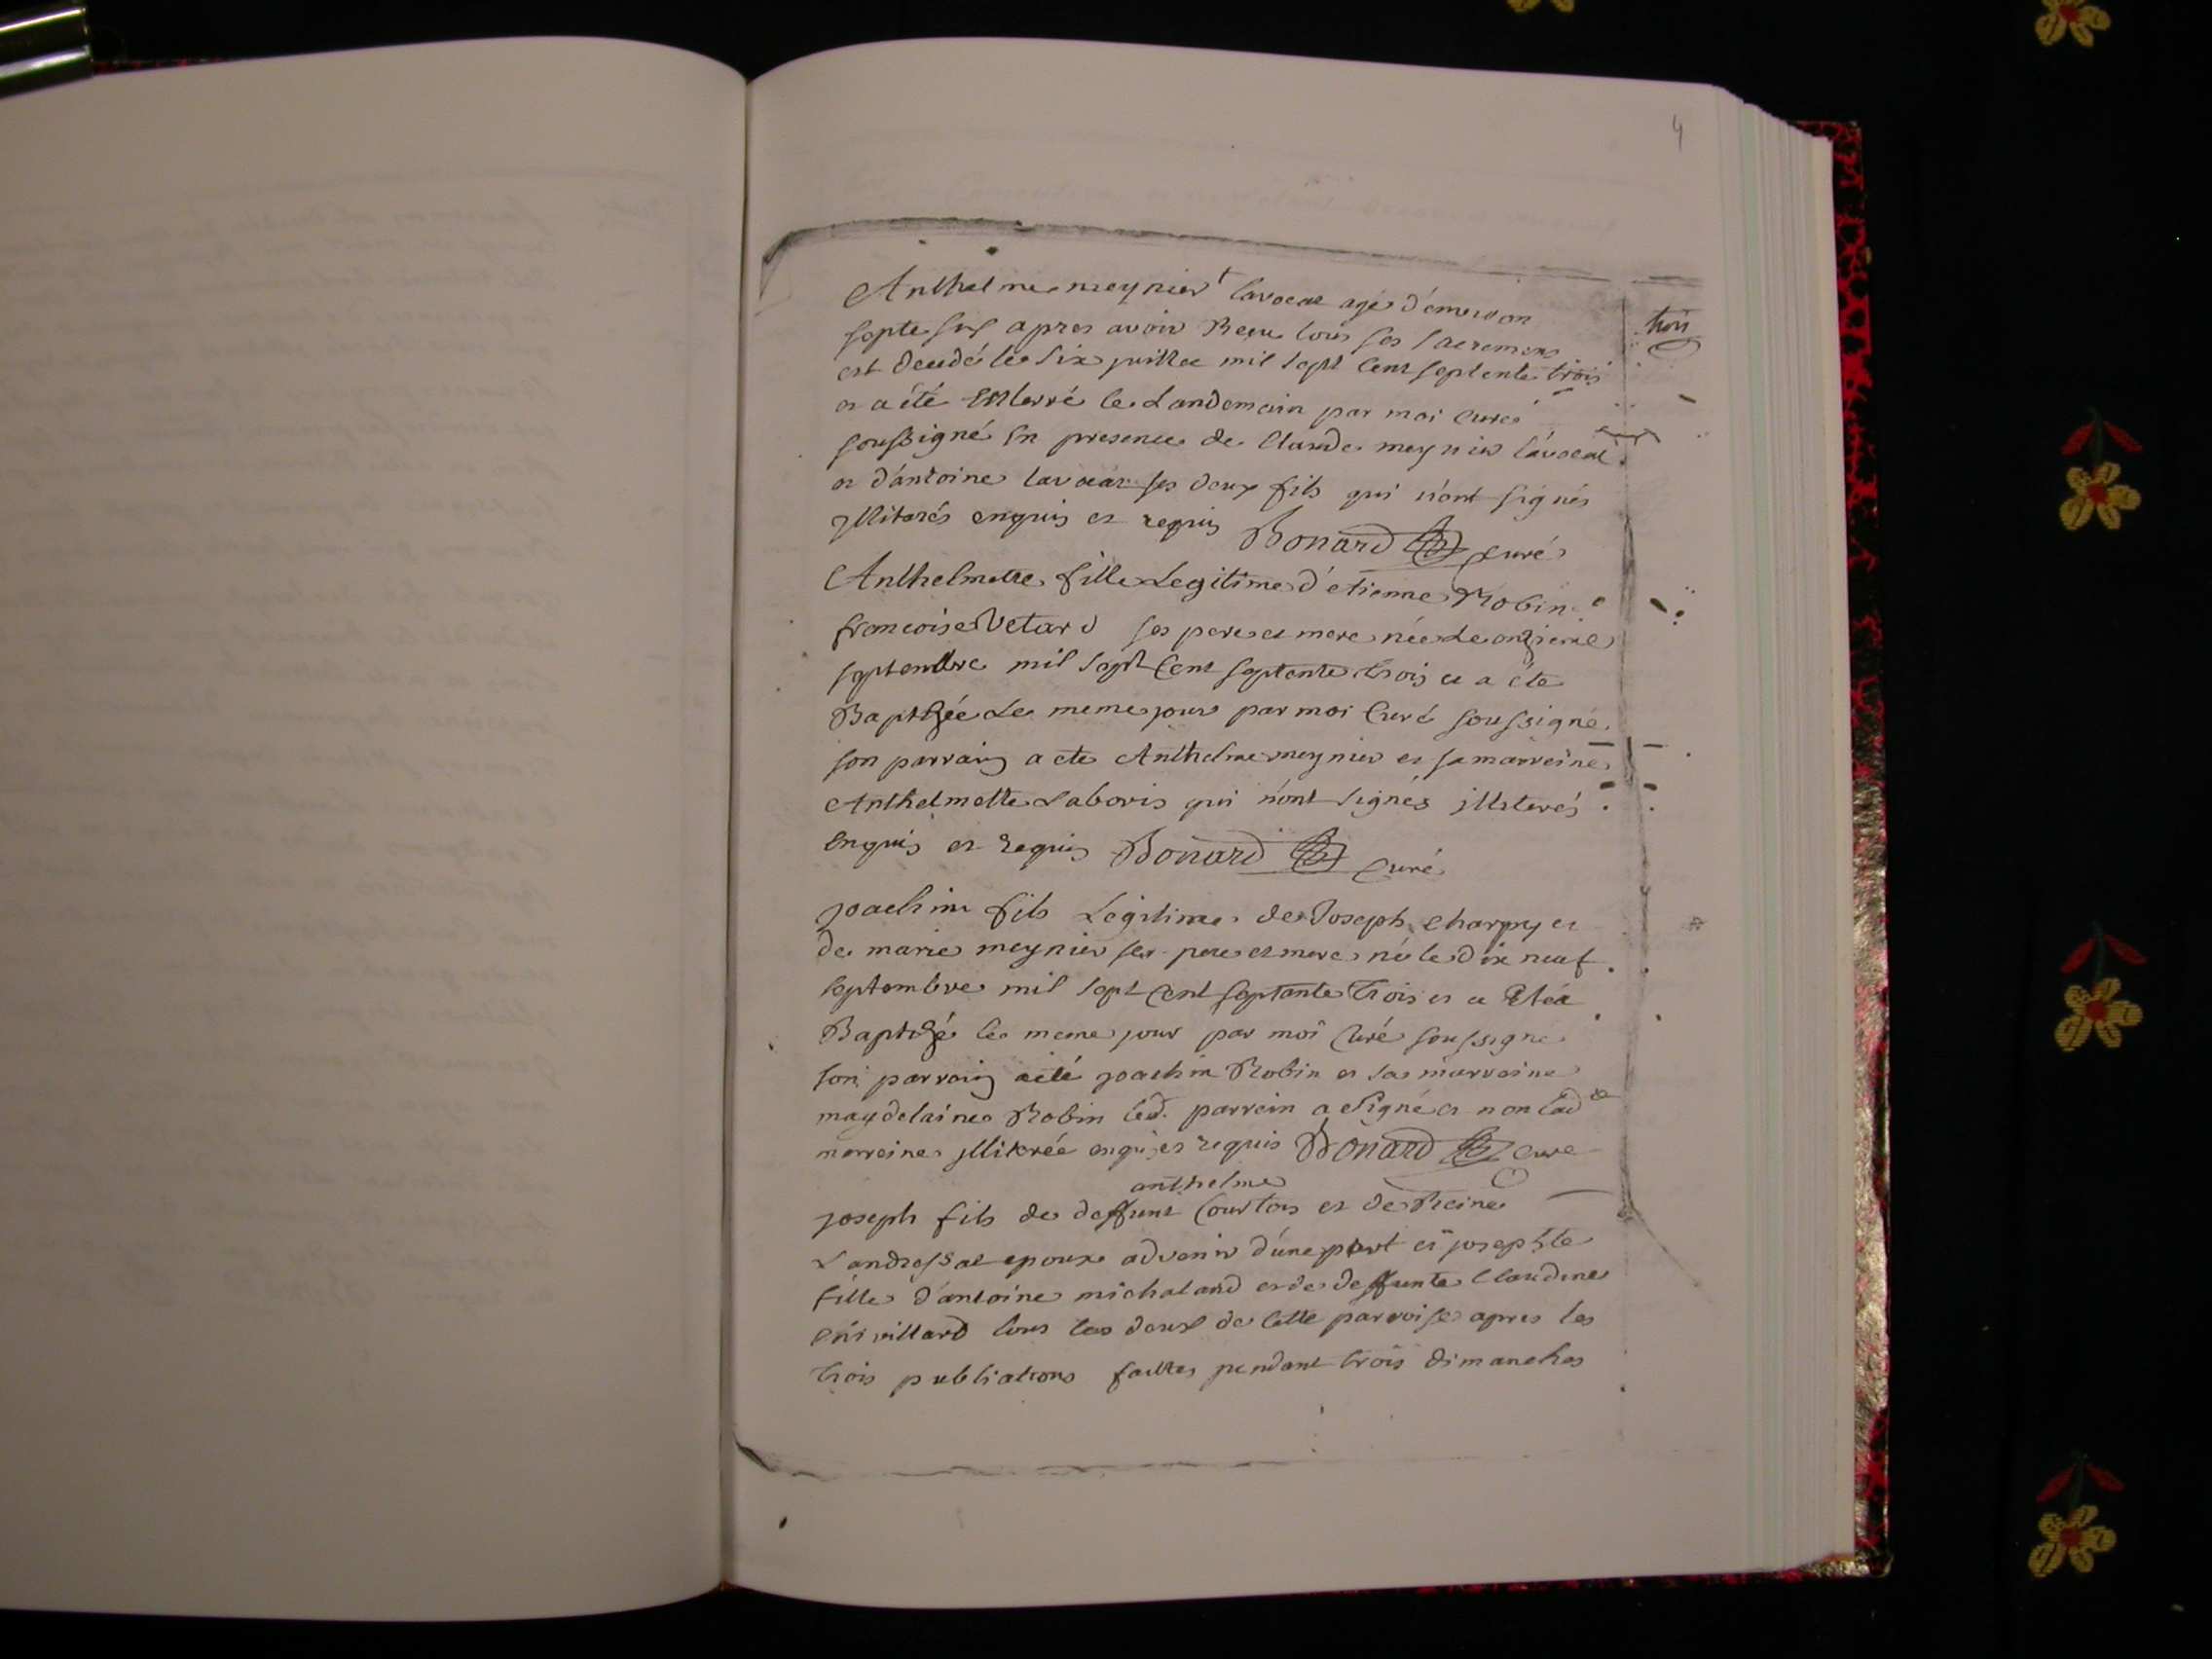 4
trois
Anthelme meynier lavocat agé d'environ
septe sus apres avoir Reçu tous ses sacremens
est decedé le six juillet mil sept cent septente trois
et a été Enterré le Landemain par moi curé
soussigné En presence de Claude meynier lavocat
et d'antoine lavocat ses deux fils qui n'ont signés
jlliterés enquis et requis Bonard curé
Anthelmette fille Legitime d'etienne Robin e
francoise Vetard ses pere et mere née Le onzieme
septembre mil sept Cent septente trois et a éte
Baptizée Le meme jour par moi Curé soussigné.
son parrain a ete Anthelme meynier et sa marreine
Anthelmette Laboris qui n'ont signés jlliterés
enquis et requis Bonard Curé
joachim fils Legitime de Joseph Charpy et
de marie meynier ses pere et mere né le dix neuf
septembre mil sept Cent septante trois et a Eté
Baptizé le meme jour par moi Curé soussigne
son parrain a eté joachim Robin et sa marreine
maydelaine Robin led. parrein a signé et non lad te
marreine jlliterée enquis et requis Bonard Curé
anthelme
joseph fils de deffunt Courtois et de Reine
Landressat epoux advenir d'une part et josephte
fille d'antoine michaland et de deffunte Claudine
tous les deux de cette parroisse apres les
trois publications faittes pendant trois dimanches